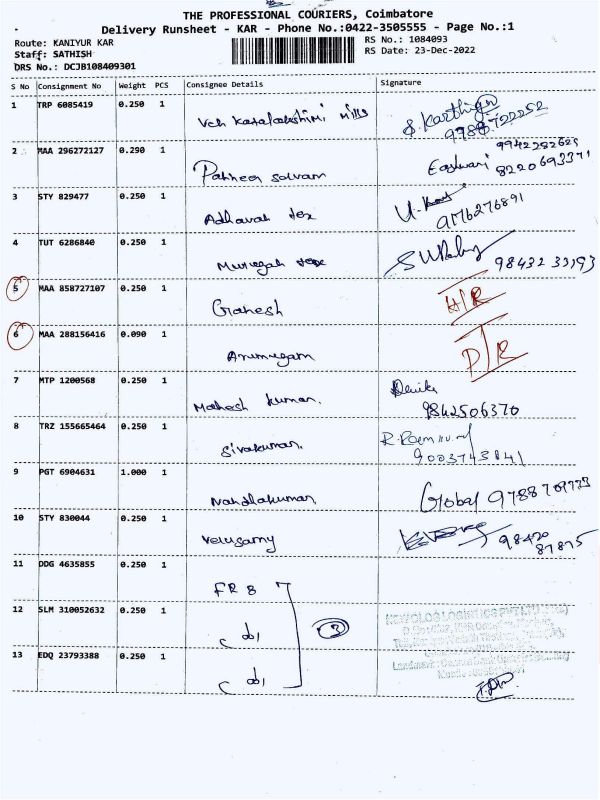 THE PROFESSIONAL COURIERS, Coimbatore
Delivery Runsheet - KAR - Phone No.:0422-3505555 - Page No.:1
Route: KANIYUR KAR
RS No.: 1084093
Staff: SATHISH
RS Date: 23-Dec-2022
DRS No.: DCJB108409301
S No Consignment No Weight PCS Consignee Details Signature
1 TRP 6085419 0.250 1 Mills S. Karthi
2 MAA 296272127 0.290 1 Eashwari
8220693371
3 STY 829477 0.250 1 Adhavan tex
9176276891
4 TUT 6286840 0.250 1 Murugan tex 98432 33193
5 MAA 858727107 0.250 1 Ganesh
6 MAA 288156416 0.090 1 Arumugam
7 MTP 1200568 0.250 1 Mahesh kumar.
9842506370
8 TRZ 155665464 0.250 1 Sivakumar.
9003743841
9 PGT 6904631 1.000 1 Nandhakumar
10 STY 830044 0.250 1 Velusamy 98420
87875
11 DDG 4635855 0.250 1
12 SLM 310052632 0.250 1 3
13 EDQ 23793388 0.250 1